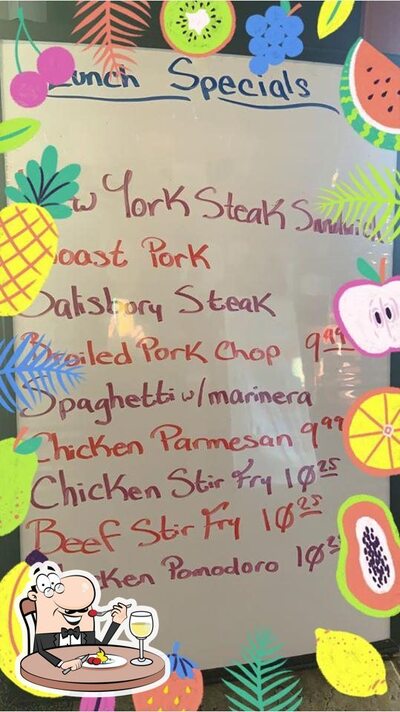 Lunch Specials
New York Steak Sandwich
Roast Pork
Salisbory Steak
Broiled Pork Chop 9.99
Spaghetti w/marinera
Chicken Parmesan 9.99
Chicken Stir Fry 10.25
Beef Stir Fry 10.25
Chicken Pomodoro 10.25